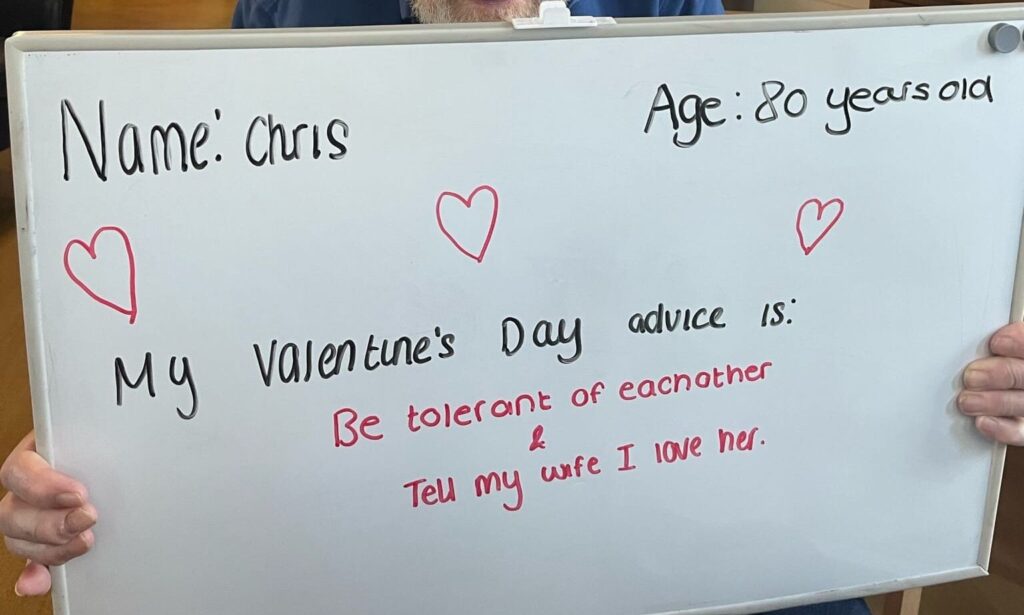 Name: Chris
Age: 80 years old
My Valentine's Day advice is:
Be tolerant of eachother
&
Tell my wife I love her.